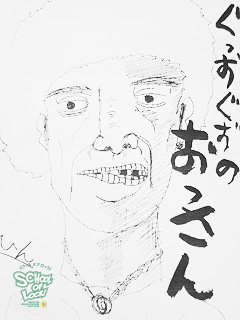 ぐずぐずの
おっさん
SCHOOL
OF
LOCK!